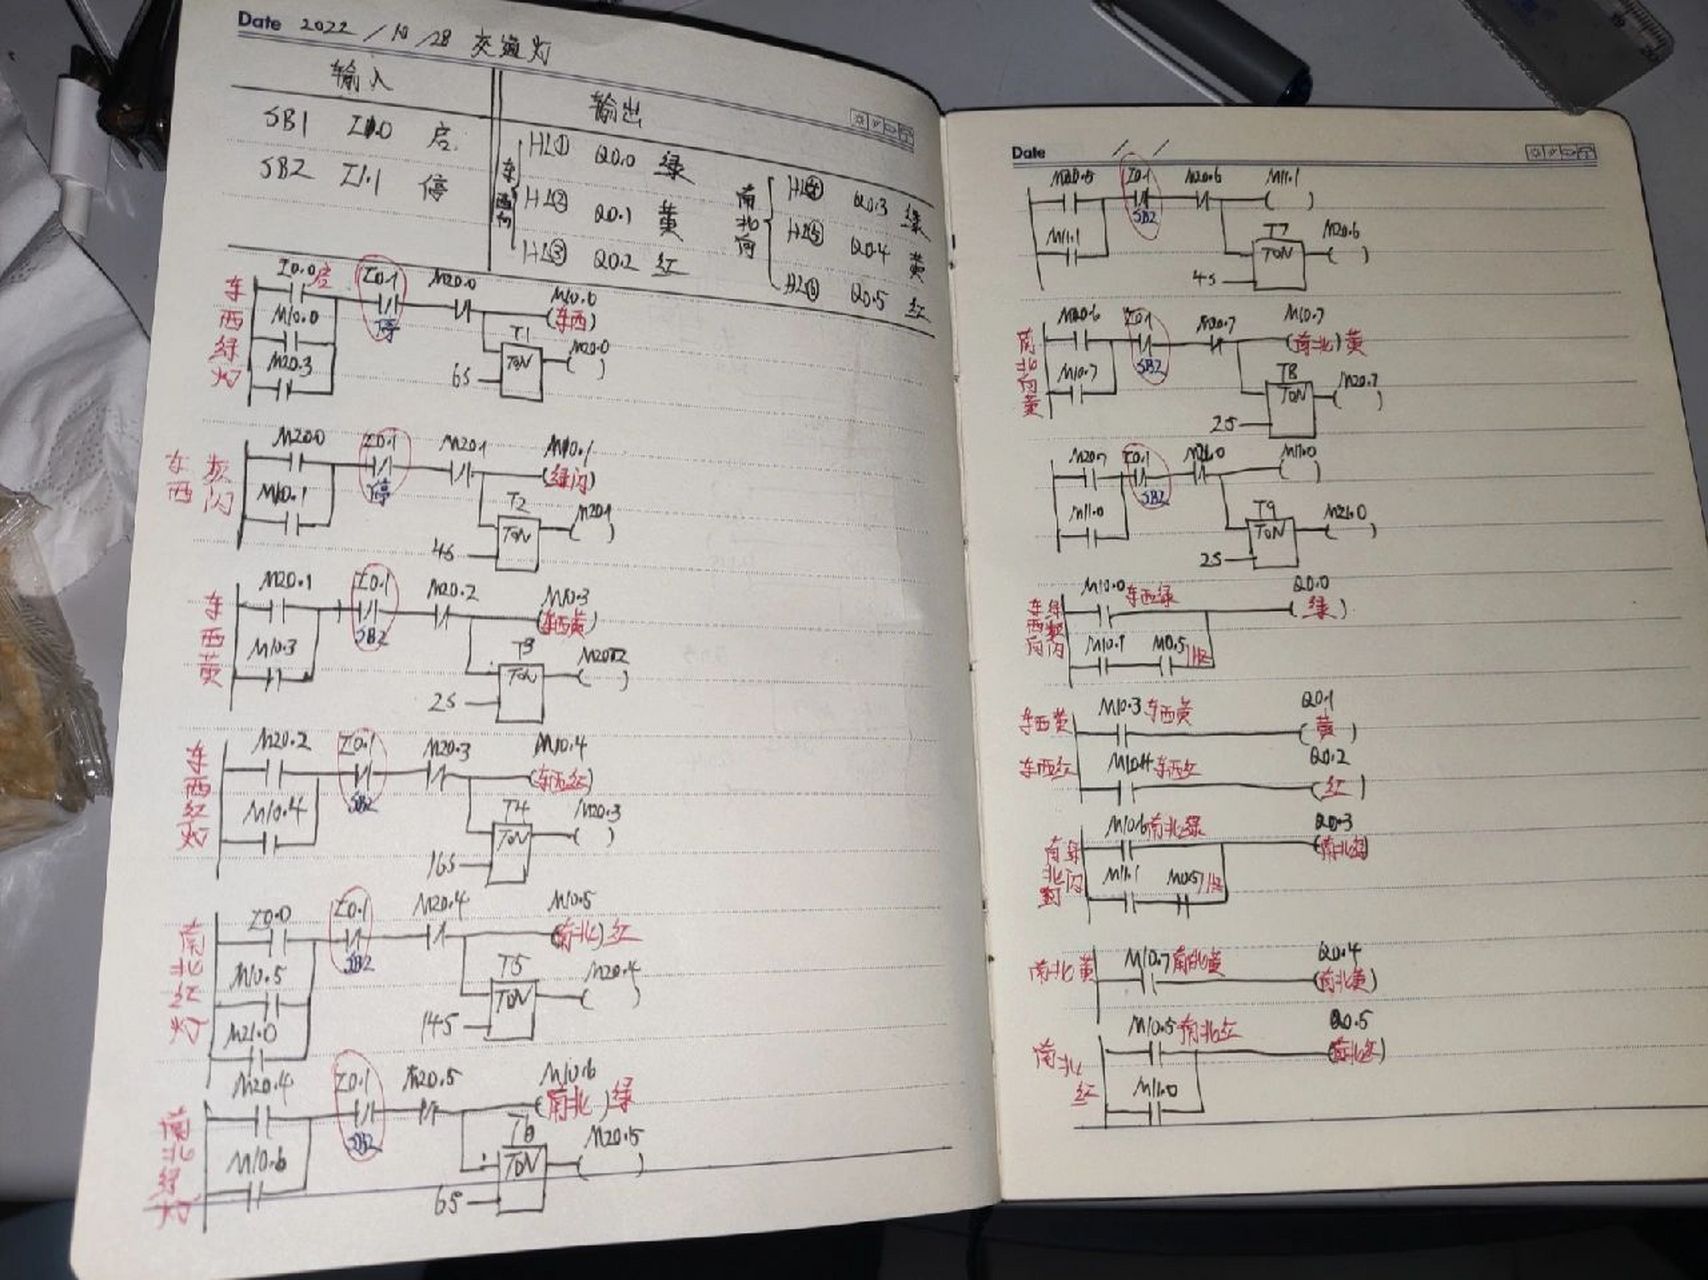 Date 2022/10/28 交通灯
输入 输出
SB1 I0.0 启
SB2 I1.1 停
东西向
HL① Q0.0 绿
HL② Q0.1 黄
HL③ Q0.2 红
南北向
HL④ Q0.3 绿
HL⑤ Q0.4 黄
HL⑥ Q0.5 红
东西绿灯
I0.0启 I0.1 M20.0 M10.0
停 (东西)
M10.0 T1 M20.0
TON ( )
M20.3 6S
东西 绿闪
M20.0 I0.1 M20.1 M10.1
停 (绿闪)
M10.1 T2 M20.1
TON ( )
4S
东西黄
M20.1 I0.1 M20.2 M10.3
SB2 (东西黄)
M10.3 T3 M20.2
TON ( )
2S
东西红灯
M20.2 I0.1 M20.3 M10.4
SB2 (东西红)
M10.4 T4 M20.3
TON ( )
16S
南北红灯
I0.0 I0.1 M20.4 M10.5
SB2 (南北)红
M10.5 T5 M20.4
TON ( )
M21.0 14S
南北绿灯
M20.4 I0.1 M20.5 M10.6
SB2 (南北)绿
M10.6 T6 M20.5
TON ( )
6S
Date / /
M20.5 I0.1 M20.6 M11.1
SB2 ( )
M11.1 T7 M20.6
TON ( )
4S
南北向黄
M20.6 I0.1 M20.7 M10.7
SB2 (南北)黄
M10.7 T8 M20.7
TON ( )
2S
M20.7 I0.1 M21.0 M11.0
SB2 ( )
M11.0 T9 M21.0
TON ( )
2S
东西向
M10.0 东西绿 Q0.0
(绿)
M10.1 M0.5 1Hz
东西黄 M10.3 东西黄 Q0.1
(黄)
东西红 M10.4 东西红 Q0.2
(红)
M10.6 南北绿 Q0.3
南北 绿闪
M11.1 M0.5 1Hz
南北黄 M10.7 南北黄 Q0.4
(南北黄)
南北红 M10.5 南北红 Q0.5
(南北红)
M11.0